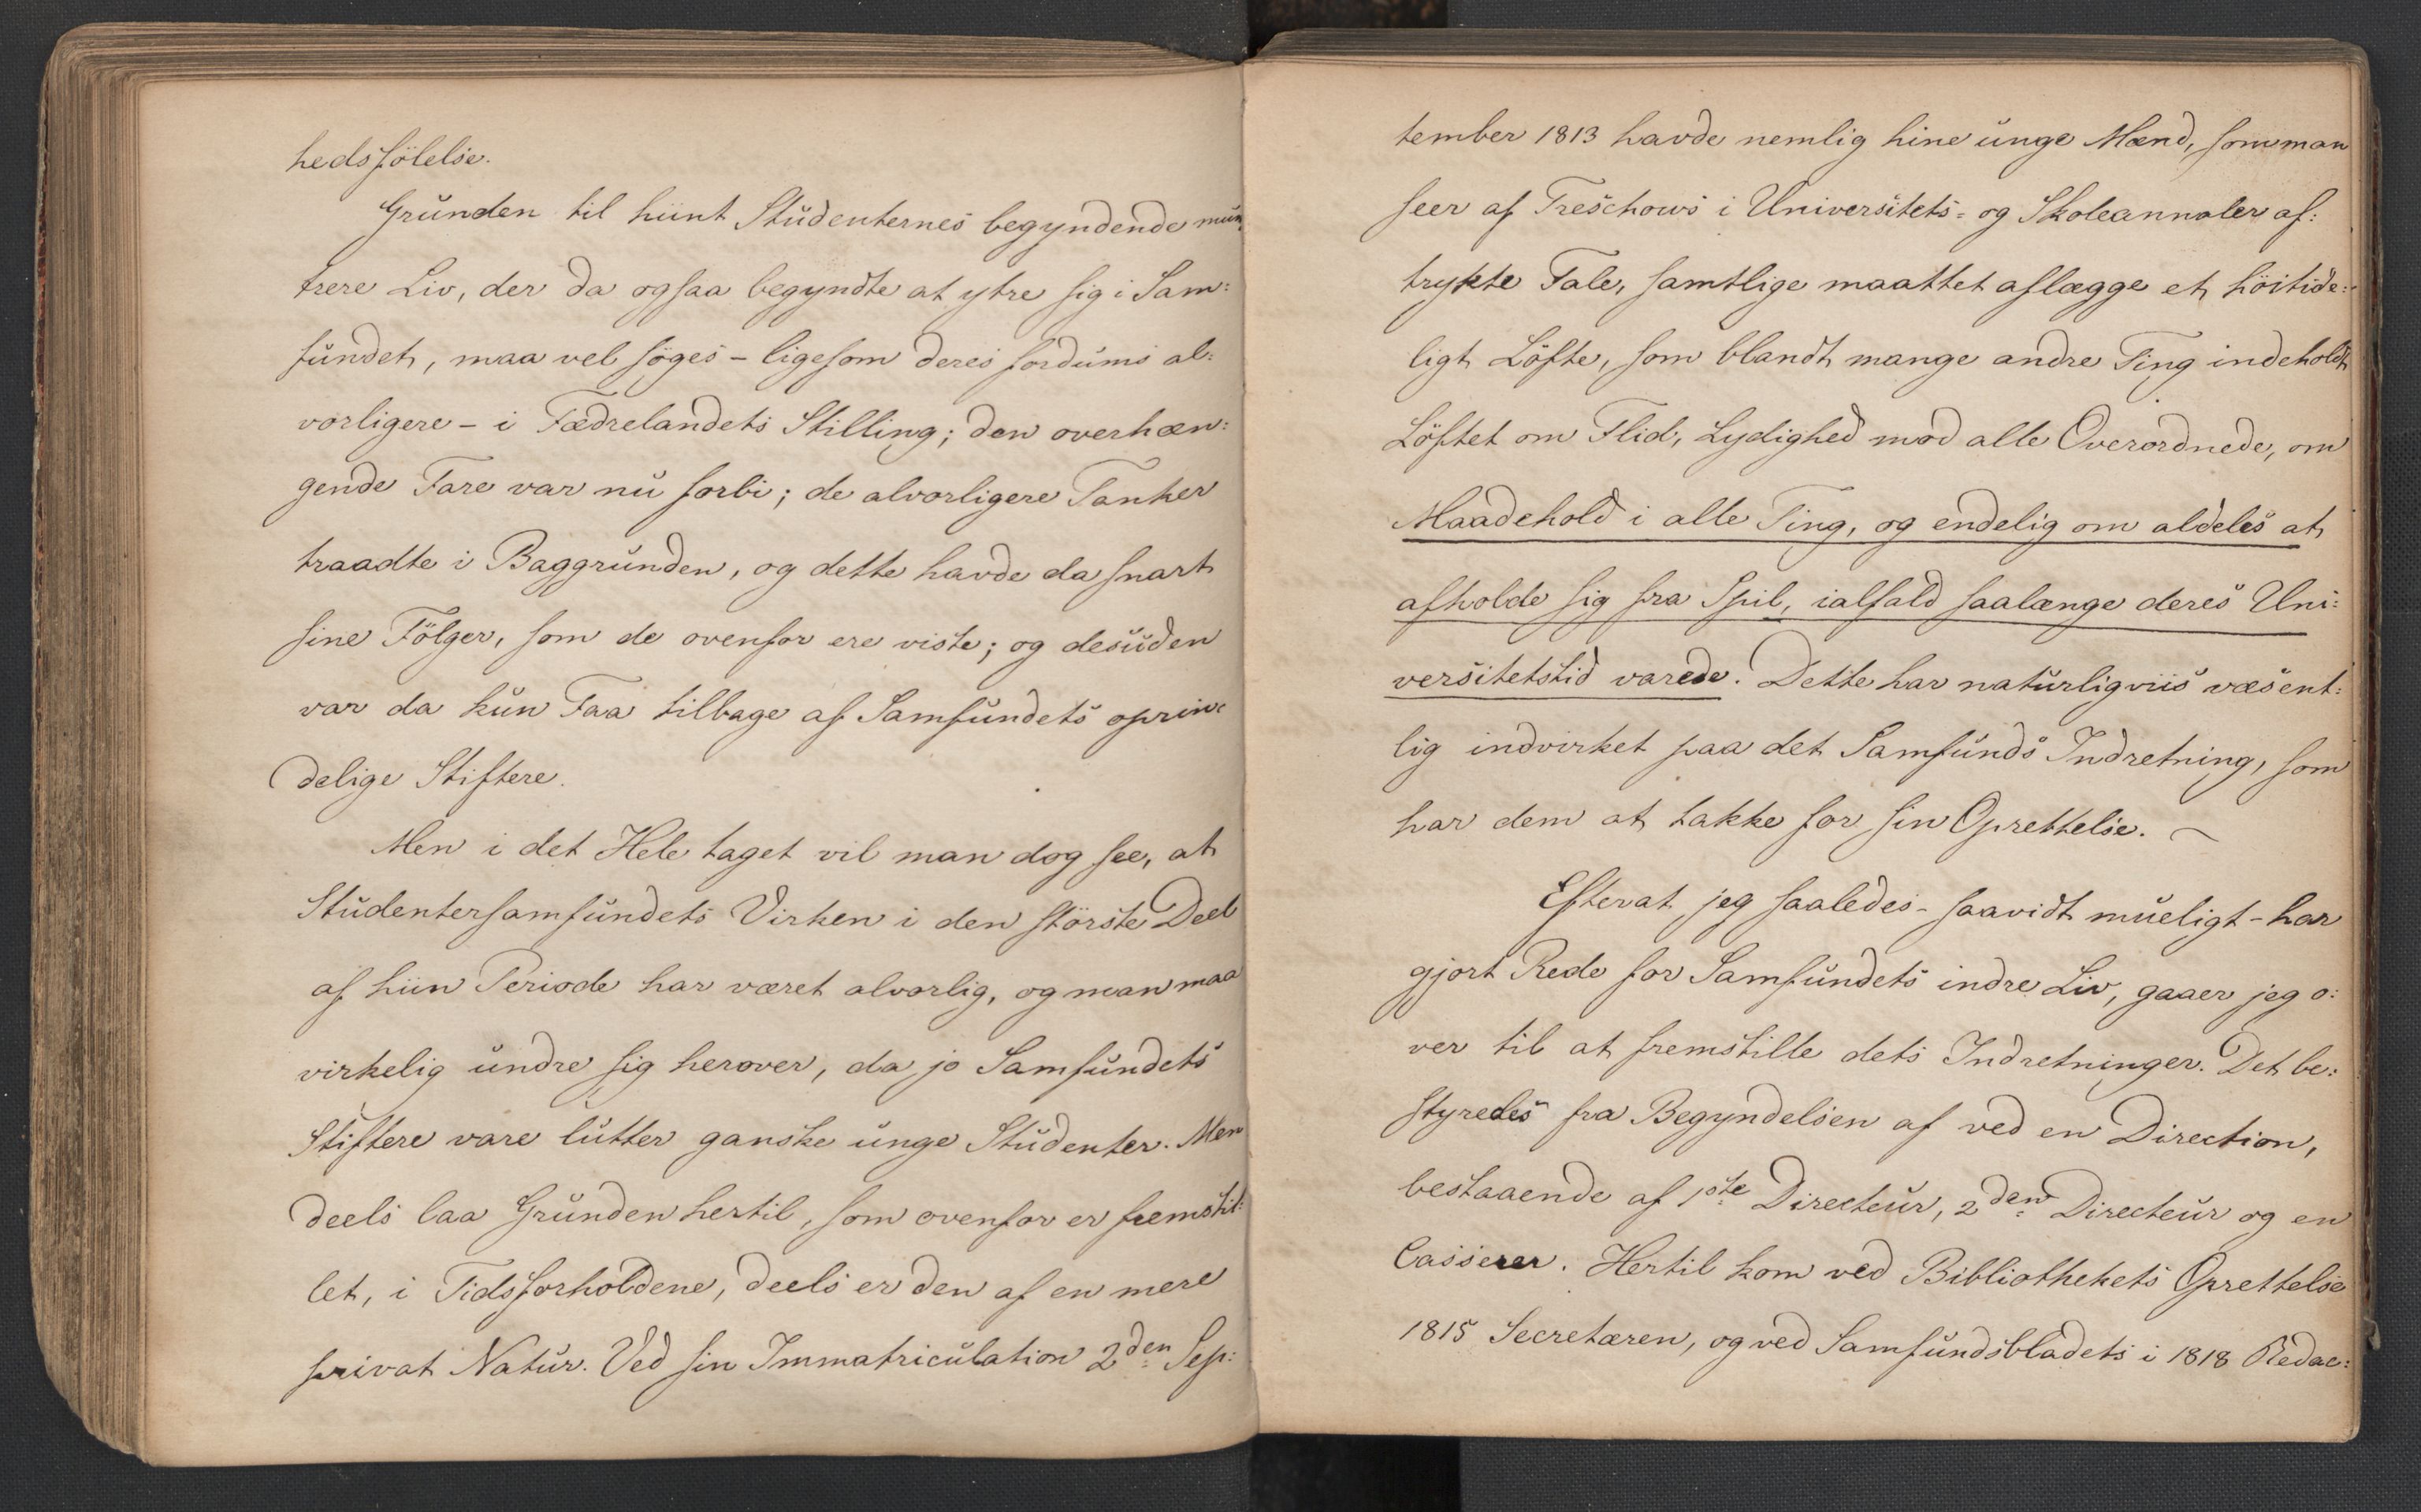 hedsfölelse.
Grunden til hiint Studenternes begyndende mun-
trere Liv, der da ogsaa begyndte at ytre sig i Sam:
fundet, maa vel søges - ligesom deres fordums al:
vorligere - i Fædrelandets Stilling; den overhæn:
gende Fare var nu forbi; de alvorligere Tanker
traadte i Baggrunden, og dette havde da snart
sine Fölger, som de ovenfor ere viste; og desuden
var da kun Faa tilbage af Samfundets oprin:
delige Stiftere.
Men i det Hele taget vil man dog see, at
Studentersamfundets Virken i den störste Deel
af hiin Periode har været alvorlig, og man maa
virkelig undre sig herover, da jo Samfundets
Stiftere vare lutter ganske unge Studenter. Men
deels laa Grunden hertil, som ovenfor er fremstil:
let, i Tidsforholdene, deels er den af en mere
privat Natur. Ved sin Immatriculation 2den Sep:
tember 1813 havde nemlig hine unge Mænd, som man
seer af Treschows i Universitets= og Skoleannaler af:
trykte Tale, samtlige maattet aflægge et höitide:
ligt Löfte, som blandt mange andre Ting indeholdt
Löftet om Flid, Lydighed mod alle Overordnede, om
Maadehold i alle Ting, og endelig om aldeles at
afholde sig fra Spil, ialfald saalænge deres Uni:
versitetstid varede. Dette har naturligviis væsent:
lig indvirket paa det Samfunds Indretning, som
har dem at takke for sin Oprettelse. ~
Efterat jeg saaledes - saavidt mueligt - har
gjort Rede for Samfundets indre Liv, gaaer jeg o:
ver til at fremstille dets Indretninger. Det be:
styredes fra Begyndelsen af ved en Direction,
bestaaende af 1ste Directeur, 2den Directeur og en
Casserer. Hertil kom ved Bibliothekets Oprettelse
1815 Secretæren, og ved Samfundsbladets i 1818 Redac: